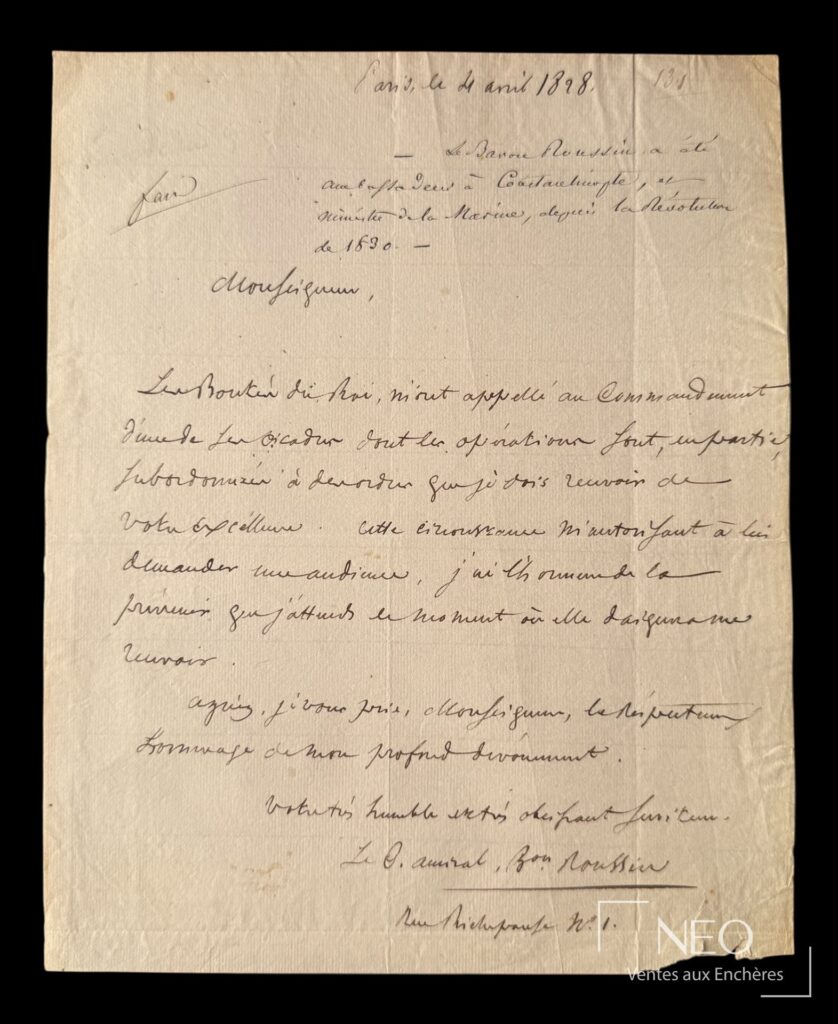 Paris, le 4 avril 1828.
131
— Le Baron Roussin a été
ambassadeur à Constantinople, et
ministre de la Marine, depuis la Révolution
de 1830. —
fait
Monseigneur,
Les Bontés du Roi, m'ont appellé au Commandement
d'une de ses escadres dont les opérations sont, en partie,
subordonnées à des ordres que je dois recevoir de
votre Excéllence. Cette circonstance m'autorisant à lui
demander une audience, j'ai l'honneur de la
prévenir que j'attends le moment où elle daignera me
recevoir.
agréez, je vous prie, Monseigneur, le Réspectueux
hommage de mon profond dévouement.
Votre très humble et très obeissant serviteur.
Le C. amiral, Bon Roussin
Rue Richepanse No 1.
NEO
Ventes aux Enchères